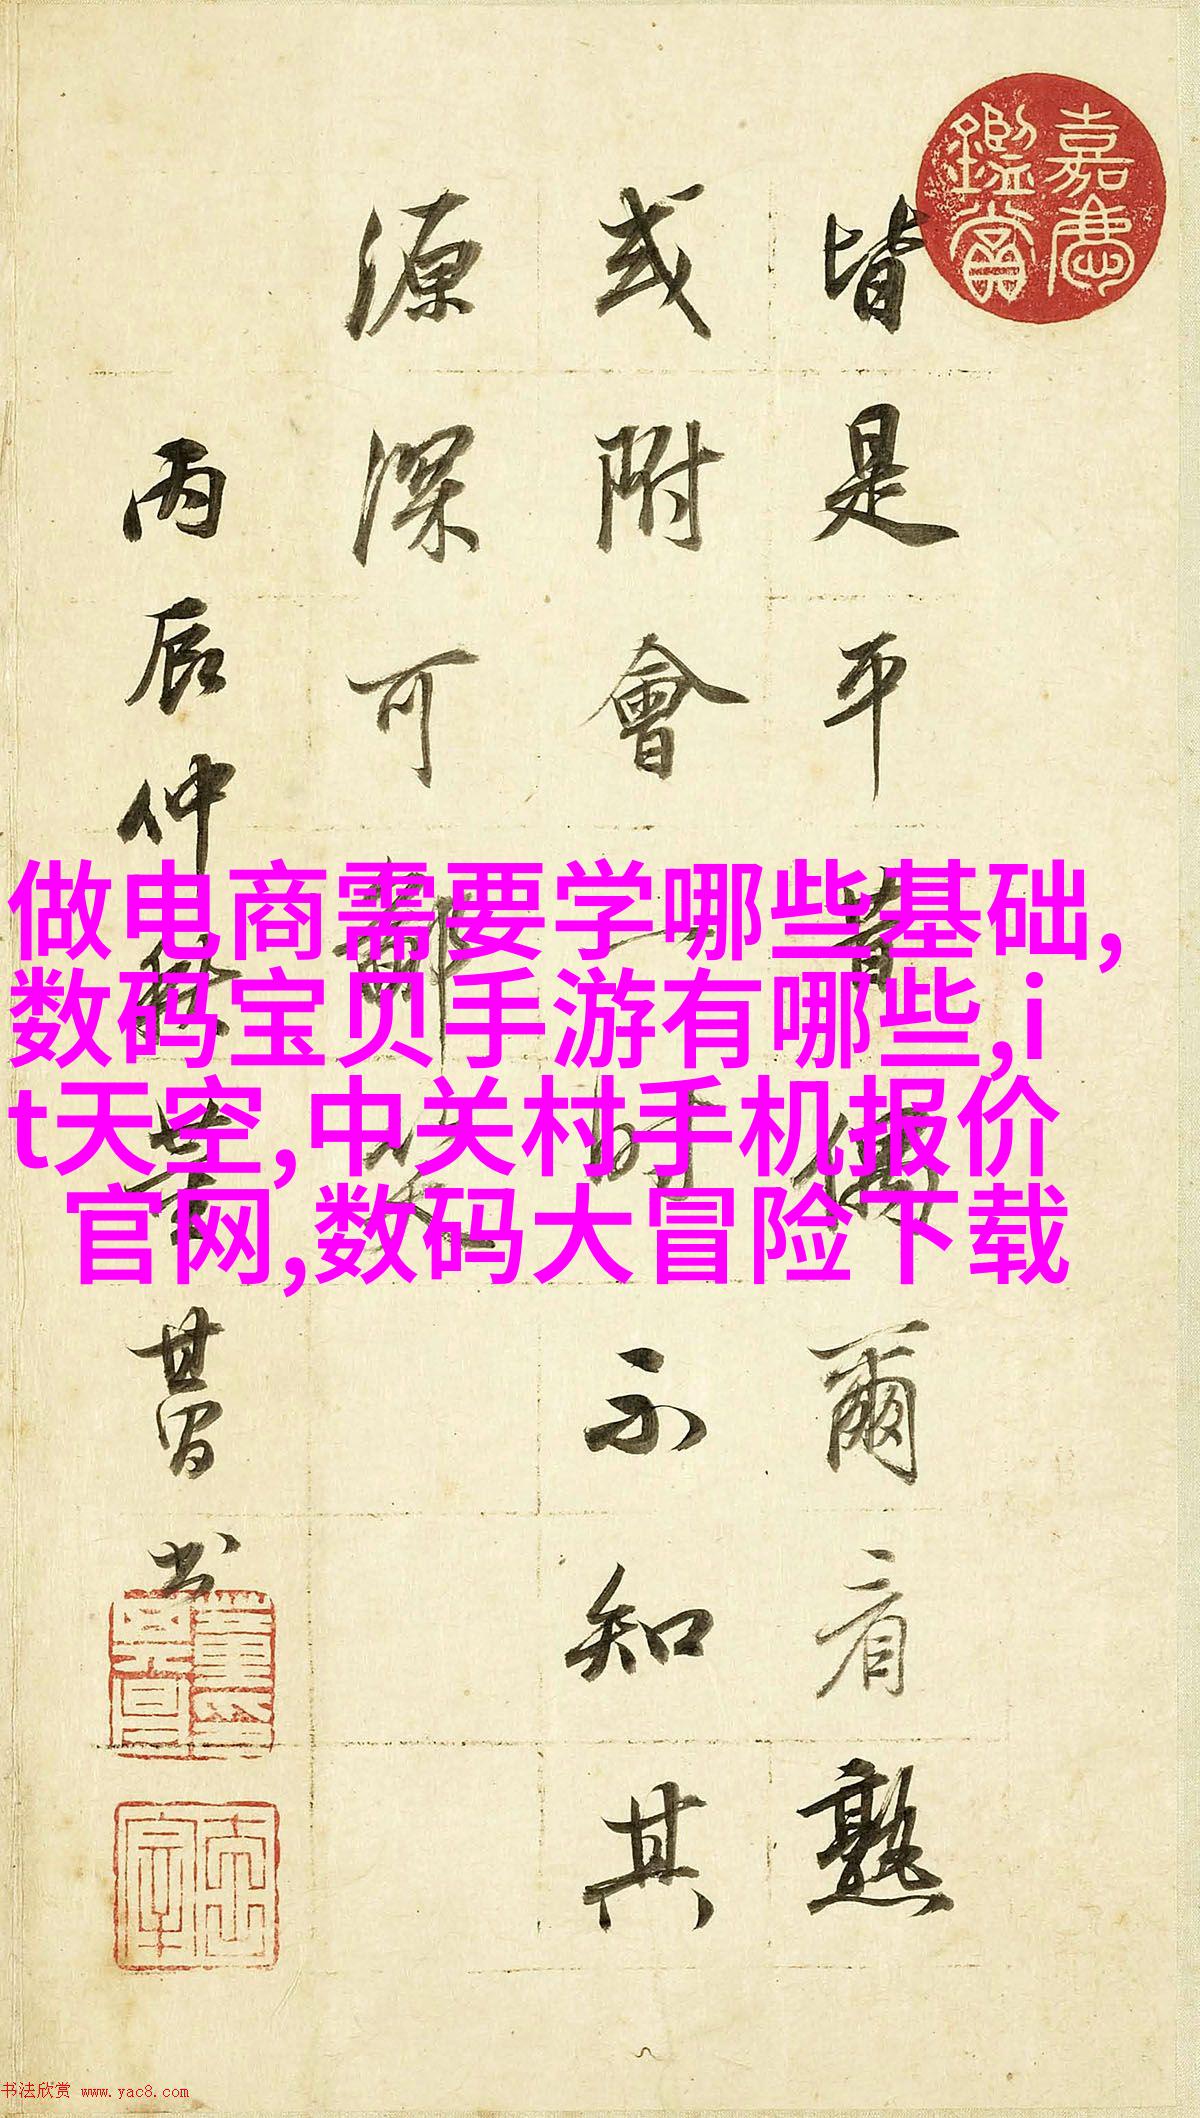 嘉慶鑑賞
皆是平昔爾看熟
或附會一時不知其
源深可鄙笑
丙辰仲董其昌书
做电商需要学哪些基础,
数码宝贝手游有哪些,i
t天空,中关村手机报价
官网,数码大冒险下载
书法欣赏 www.yac8.com